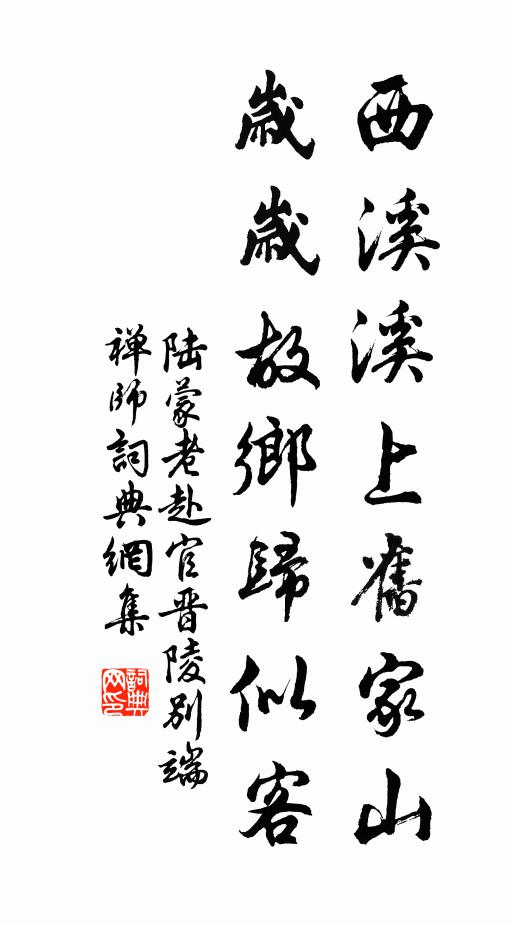 西溪溪上舊家山
歲歲故鄉歸似客
陆蒙老赴官晋陵別端
禅師詞典網集
詞典网印